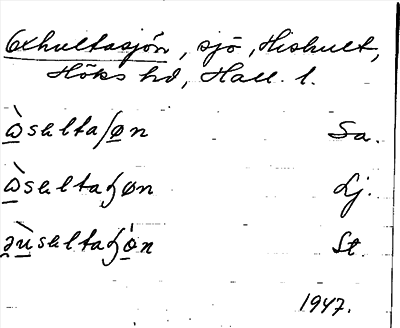 Oxhultasjön, sjö, Hishult,
Höks hd, Hall. l.
ὼseltaʃøn Sa.
ὼseltaɧøn Lj.
əùseltaɧǿn St.
1947.